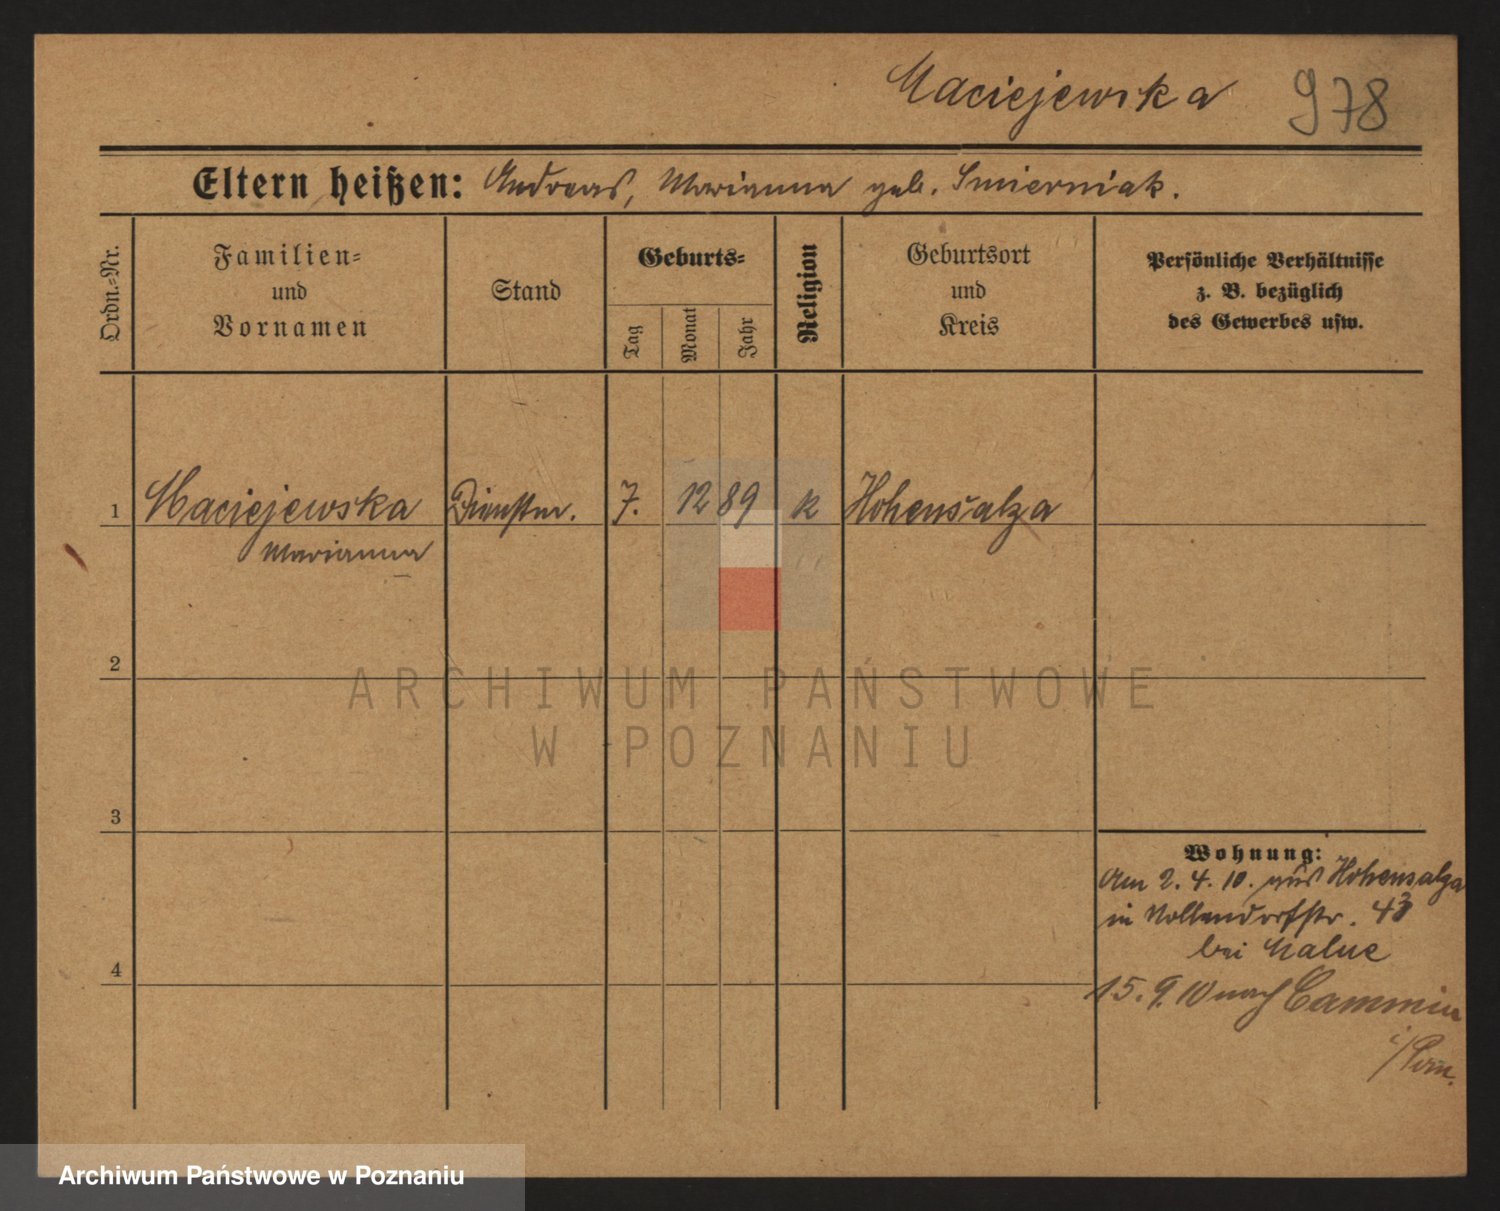 Maciejewska 978
Eltern heißen: Andreas, Marianna geb. Smierniak.
Ordn.-Nr.
Familien-
und
Vornamen
Stand
Geburts-
Tag
Monat
Jahr
Religion
Geburtsort
und
Kreis
Persönliche Verhältnisse
z. B. bezüglich
des Gewerbes usw.
1 Maciejewska Dienstm. 7. 12 89 k Hohensalza
Marianna
2
ARCHIWUM PAŃSTWOWE
W POZNANIU
3
Wohnung:
Am 2. 4. 10. aus Hohensalza
in Nollendorfstr. 43
bei Malue
4
15. 9. 10 nach Cammin
i/Pom.
Archiwum Państwowe w Poznaniu